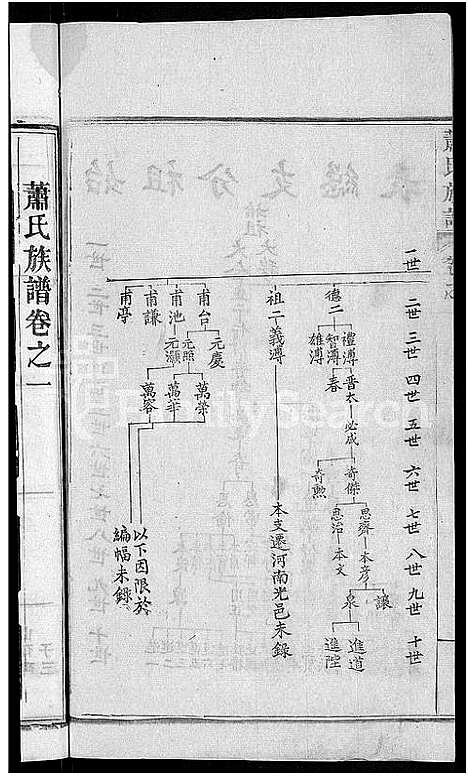 一世
二世
三世
四世
五世
六世
七世
八世
九世
十世
德二
禮溥
智溥
雄溥
晋太
春
必成
奇傑
奇勲
思齊
思治
本彦
本文
讓
泉
進道
進陞
祖二
義溥
本支遷河南光邑未錄
甫台
甫池
甫謙
甫亭
元慶
元照
元灝
萬榮
萬華
萬容
以下因限於
編幅未錄
蕭氏族譜卷之一
蕭氏族譜